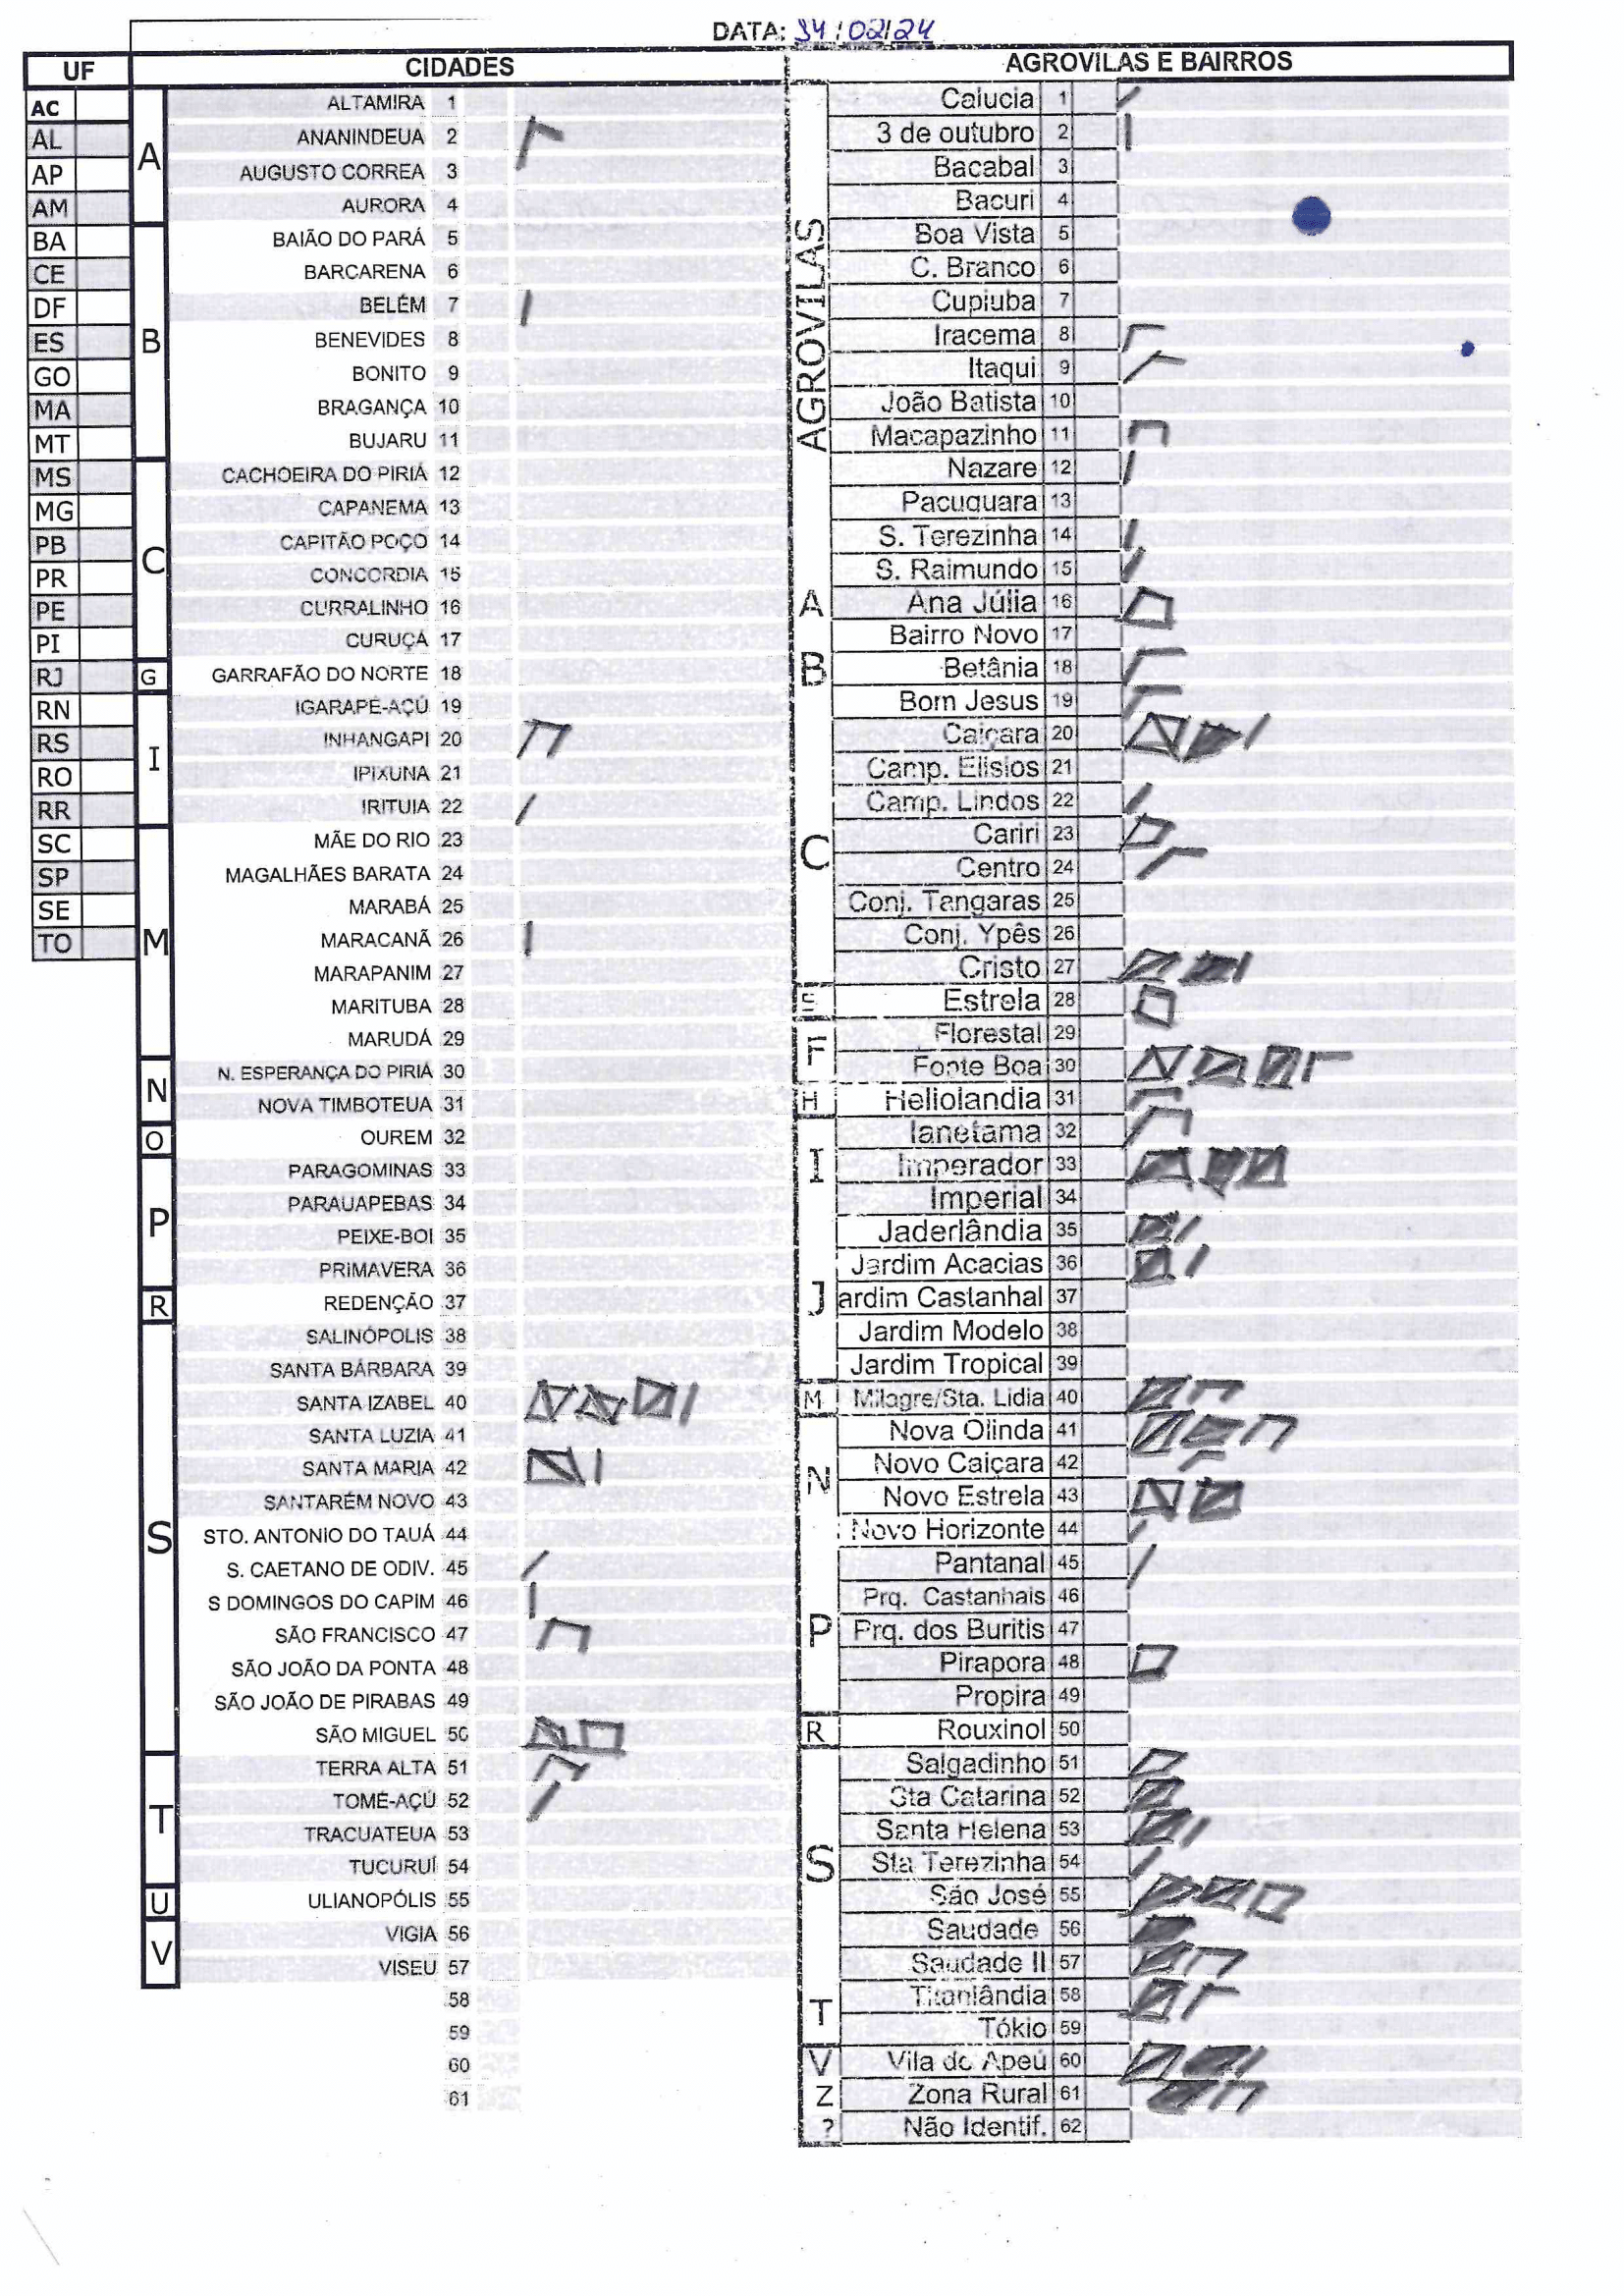 DATA: 34/02/24
UF CIDADES AGROVILAS E BAIRROS
AC
AL
AP
AM
BA
CE
DF
ES
GO
MA
MT
MS
MG
PB
PR
PE
PI
RJ
RN
RS
RO
RR
SC
SP
SE
TO
A
ALTAMIRA 1
ANANINDEUA 2
AUGUSTO CORREA 3
AURORA 4
B
BAIÃO DO PARÁ 5
BARCARENA 6
BELÉM 7
BENEVIDES 8
BONITO 9
BRAGANÇA 10
BUJARU 11
C
CACHOEIRA DO PIRIÁ 12
CAPANEMA 13
CAPITÃO POÇO 14
CONCORDIA 15
CURRALINHO 16
CURUÇÁ 17
G
GARRAFÃO DO NORTE 18
I
IGARAPÉ-AÇÚ 19
INHANGAPI 20
IPIXUNA 21
IRITUIA 22
M
MÃE DO RIO 23
MAGALHÃES BARATA 24
MARABÁ 25
MARACANÃ 26
MARAPANIM 27
MARITUBA 28
MARUDÁ 29
N
N. ESPERANÇA DO PIRIÁ 30
NOVA TIMBOTEUA 31
O
OUREM 32
P
PARAGOMINAS 33
PARAUAPEBAS 34
PEIXE-BOI 35
PRIMAVERA 36
R
REDENÇÃO 37
S
SALINÓPOLIS 38
SANTA BÁRBARA 39
SANTA IZABEL 40
SANTA LUZIA 41
SANTA MARIA 42
SANTARÉM NOVO 43
STO. ANTONIO DO TAUÁ 44
S. CAETANO DE ODIV. 45
S DOMINGOS DO CAPIM 46
SÃO FRANCISCO 47
SÃO JOÃO DA PONTA 48
SÃO JOÃO DE PIRABAS 49
SÃO MIGUEL 50
T
TERRA ALTA 51
TOMÉ-AÇÚ 52
TRACUATEUA 53
TUCURUÍ 54
U
ULIANOPÓLIS 55
V
VIGIA 56
VISEU 57
58
59
60
61
AGROVILAS
Calucia 1
3 de outubro 2
Bacabal 3
Bacuri 4
Boa Vista 5
C. Branco 6
Cupiuba 7
Iracema 8
Itaqui 9
João Batista 10
Macapazinho 11
Nazare 12
Pacuquara 13
S. Terezinha 14
S. Raimundo 15
A
Ana Júlia 16
B
Bairro Novo 17
Betânia 18
Bom Jesus 19
C
Caiçara 20
Camp. Elisios 21
Camp. Lindos 22
Cariri 23
Centro 24
Conj. Tangaras 25
Conj. Ypês 26
Cristo 27
E
Estrela 28
F
Florestal 29
Fonte Boa 30
H
Heliolandia 31
I
Ianetama 32
Imperador 33
Imperial 34
J
Jaderlândia 35
Jardim Acacias 36
ardim Castanhal 37
Jardim Modelo 38
Jardim Tropical 39
M
Milagre/Sta. Lidia 40
N
Nova Olinda 41
Novo Caiçara 42
Novo Estrela 43
Novo Horizonte 44
P
Pantanal 45
Prq. Castanhais 46
Prq. dos Buritis 47
Pirapora 48
Propira 49
R
Rouxinol 50
S
Salgadinho 51
Sta Catarina 52
Santa Helena 53
Sta Terezinha 54
São José 55
Saudade 56
Saudade II 57
T
Titanlândia 58
Tókio 59
V
Vila do Apeú 60
Z
Zona Rural 61
?
Não Identif. 62